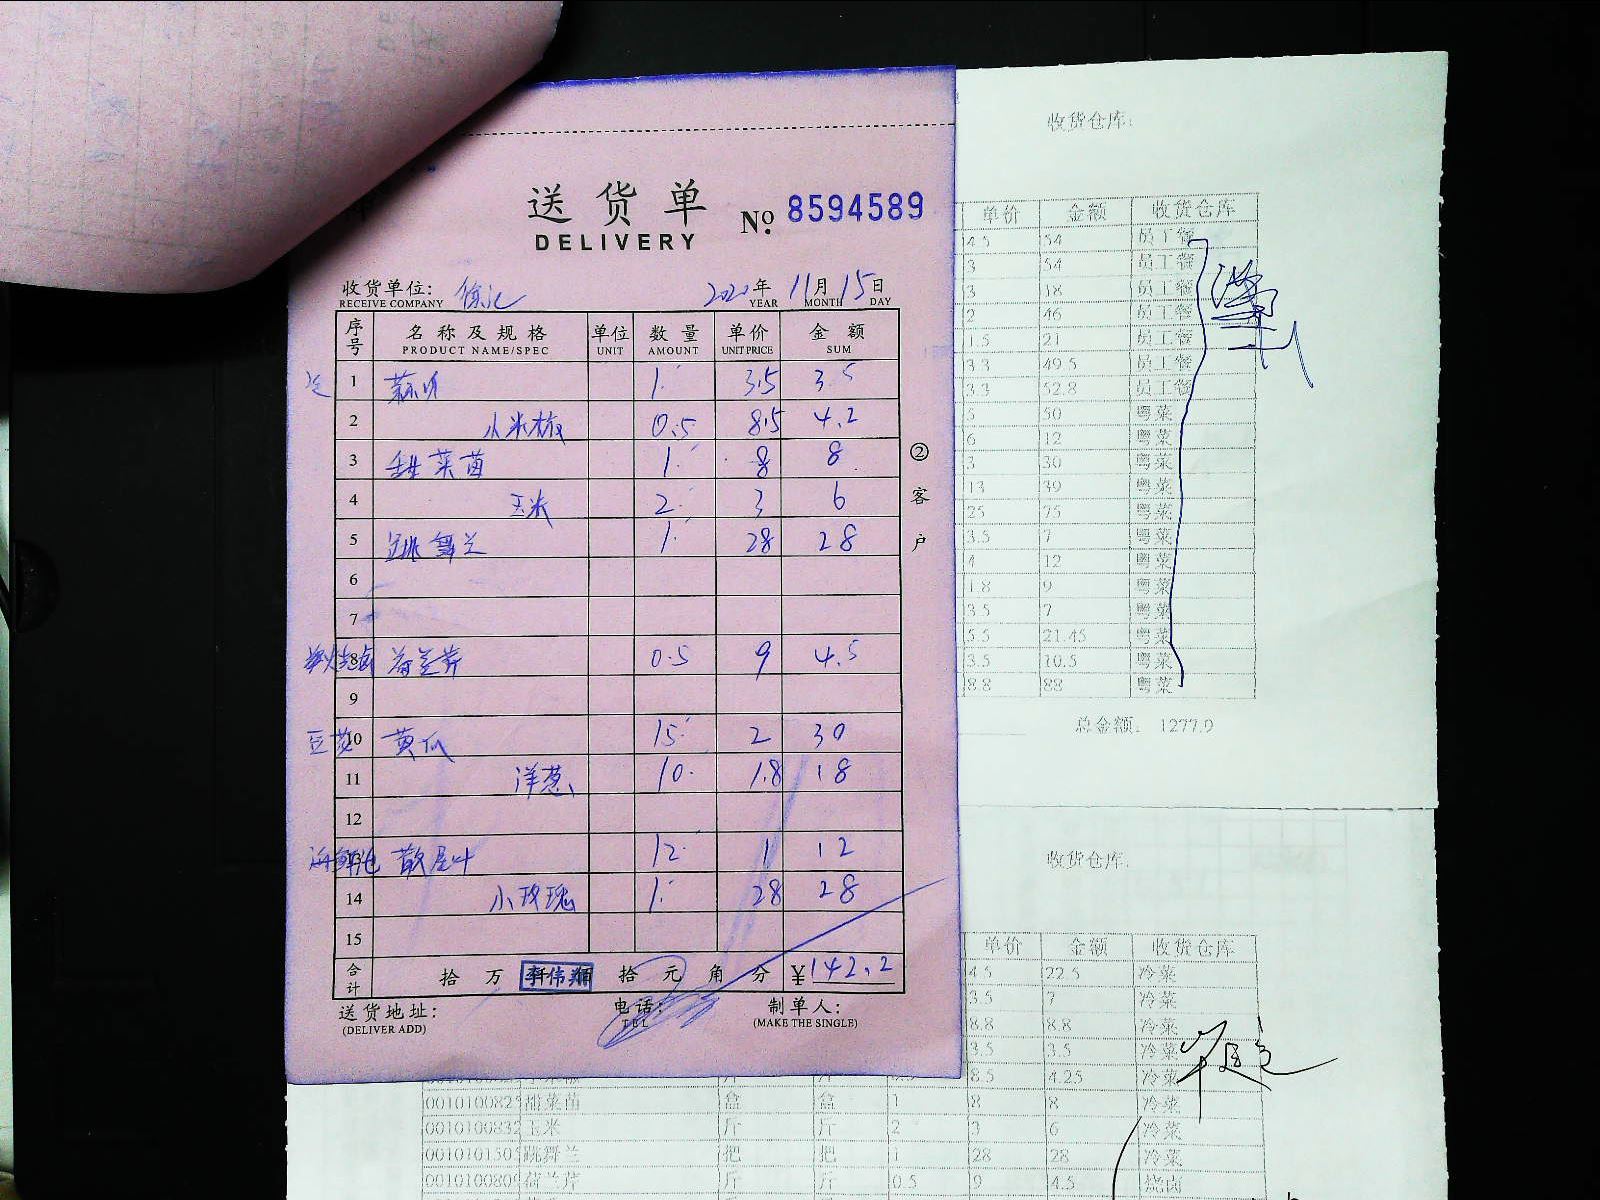 送货单
DELIVERY
№ 8594589
收货单位: 徐汇 2020年 11月 15日
RECEIVE COMPANY YEAR MONTH DAY
序号 名称及规格 单位 数量 单价 金额
PRODUCT NAME/SPEC UNIT AMOUNT UNIT PRICE SUM
1 1 3.5 3.5
2 小米椒 0.5 8.5 4.2
3 甜菜苗 1 8 8
4 玉米 2 3 6
5 跳舞兰 1 28 28
6
7
8 荷兰芹 0.5 9 4.5
9
10 黄瓜 15 2 30
11 洋葱 10 1.8 18
12
13 散尾叶 12 1 12
14 小玫瑰 1 28 28
15
合计 拾 万 李伟翔 拾 元 角 分 ¥142.2
送货地址: 电话: 制单人:
(DELIVER ADD) TEL (MAKE THE SINGLE)
②客户
收货仓库:
单价 金额 收货仓库
4.5 54 员工餐
3 54 员工餐
3 18 员工餐
2 46 员工餐
1.5 21 员工餐
3.3 49.5 员工餐
3.3 52.8 员工餐
5 50 粤菜
6 12 粤菜
3 30 粤菜
13 39 粤菜
25 75 粤菜
3.5 7 粤菜
4 12 粤菜
1.8 9 粤菜
3.5 7 粤菜
5.5 21.45 粤菜
3.5 10.5 粤菜
8.8 88 粤菜
总金额: 1277.9
收货仓库:
单价 金额 收货仓库
4.5 22.5 冷菜
3.5 7 冷菜
8.8 8.8 冷菜
3.5 3.5 冷菜
8.5 4.25 冷菜
甜菜苗 盒 盒 1 8 8 冷菜
玉米 斤 斤 2 3 6 冷菜
跳舞兰 把 把 1 28 28 冷菜
荷兰芹 斤 斤 0.5 9 4.5 烧卤